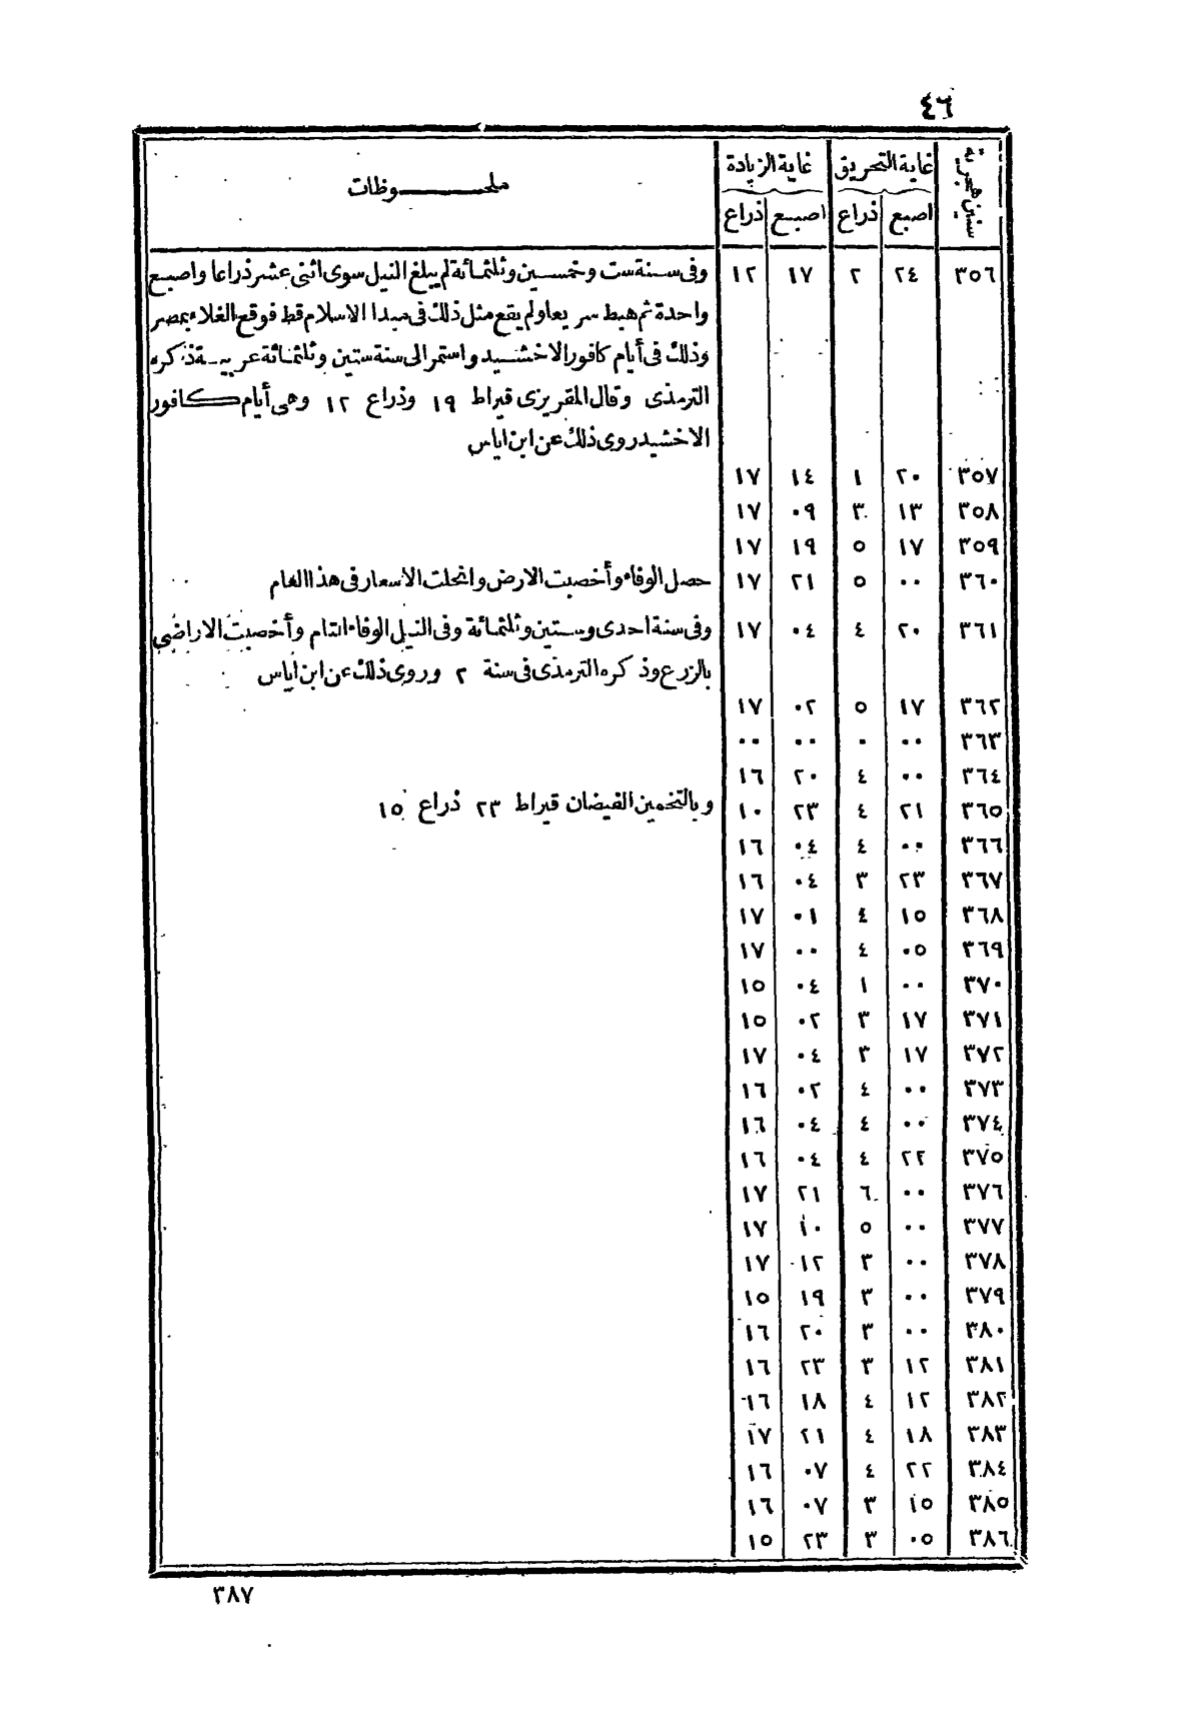 ٤٦
سنين هجرية غاية التحريق غاية الزيادة ملحـــوظات
اصبع ذراع اصبع ذراع
٣٥٦ ٢٤ ٢ ١٧ ١٢ وفى سنة ست وخمسين وثلثمائة لم يبلغ النيل سوى اثنى عشر ذراعا واصبع
واحدة ثم هبط سريعا ولم يقع مثل ذلك فى مبدا الاسلام قط فوقع الغلاء بمصر
وذلك فى أيام كافور الاخشيد واستمر الى سنة ستين وثلثمائة عربية ذكره
الترمذى وقال المقريزى قيراط ١٩ وذراع ١٢ وهى أيام كافور
الاخشيد روى ذلك عن ابن اياس
٣٥٧ ٢٠ ١ ١٤ ١٧
٣٥٨ ١٣ ٣ ٠٩ ١٧
٣٥٩ ١٧ ٥ ١٩ ١٧
٣٦٠ ٠٠ ٥ ٢١ ١٧ حصل الوفاء وأخصبت الارض وانحلت الاسعار فى هذا العام
٣٦١ ٢٠ ٤ ٠٤ ١٧ وفى سنة احدى وستين وثلثمائة وفى النيل الوفاء التام وأخصبت الاراضى
بالزرع وذكره الترمذى فى سنة ٢ وروى ذلك عن ابن اياس
٣٦٢ ١٧ ٥ ٠٢ ١٧
٣٦٣ ٠٠ ٠ ٠٠ ٠٠
٣٦٤ ٠٠ ٤ ٢٠ ١٦
٣٦٥ ٢١ ٤ ٢٣ ١٠ وبالتخمين الفيضان قيراط ٢٣ ذراع ١٥
٣٦٦ ٠٠ ٤ ٠٤ ١٦
٣٦٧ ٢٣ ٣ ٠٤ ١٦
٣٦٨ ١٥ ٤ ٠١ ١٧
٣٦٩ ٠٥ ٤ ٠٠ ١٧
٣٧٠ ٠٠ ١ ٠٤ ١٥
٣٧١ ١٧ ٣ ٠٢ ١٥
٣٧٢ ١٧ ٣ ٠٤ ١٧
٣٧٣ ٠٠ ٤ ٠٢ ١٦
٣٧٤ ٠٠ ٤ ٠٤ ١٦
٣٧٥ ٢٢ ٤ ٠٤ ١٦
٣٧٦ ٠٠ ٦ ٢١ ١٧
٣٧٧ ٠٠ ٥ ١٠ ١٧
٣٧٨ ٠٠ ٣ ١٢ ١٧
٣٧٩ ٠٠ ٣ ١٩ ١٥
٣٨٠ ٠٠ ٣ ٢٠ ١٦
٣٨١ ١٢ ٣ ٢٣ ١٦
٣٨٢ ١٢ ٤ ١٨ ١٦
٣٨٣ ١٨ ٤ ٢١ ١٧
٣٨٤ ٢٢ ٤ ٠٧ ١٦
٣٨٥ ١٥ ٣ ٠٧ ١٦
٣٨٦ ٠٥ ٣ ٢٣ ١٥
٣٨٧